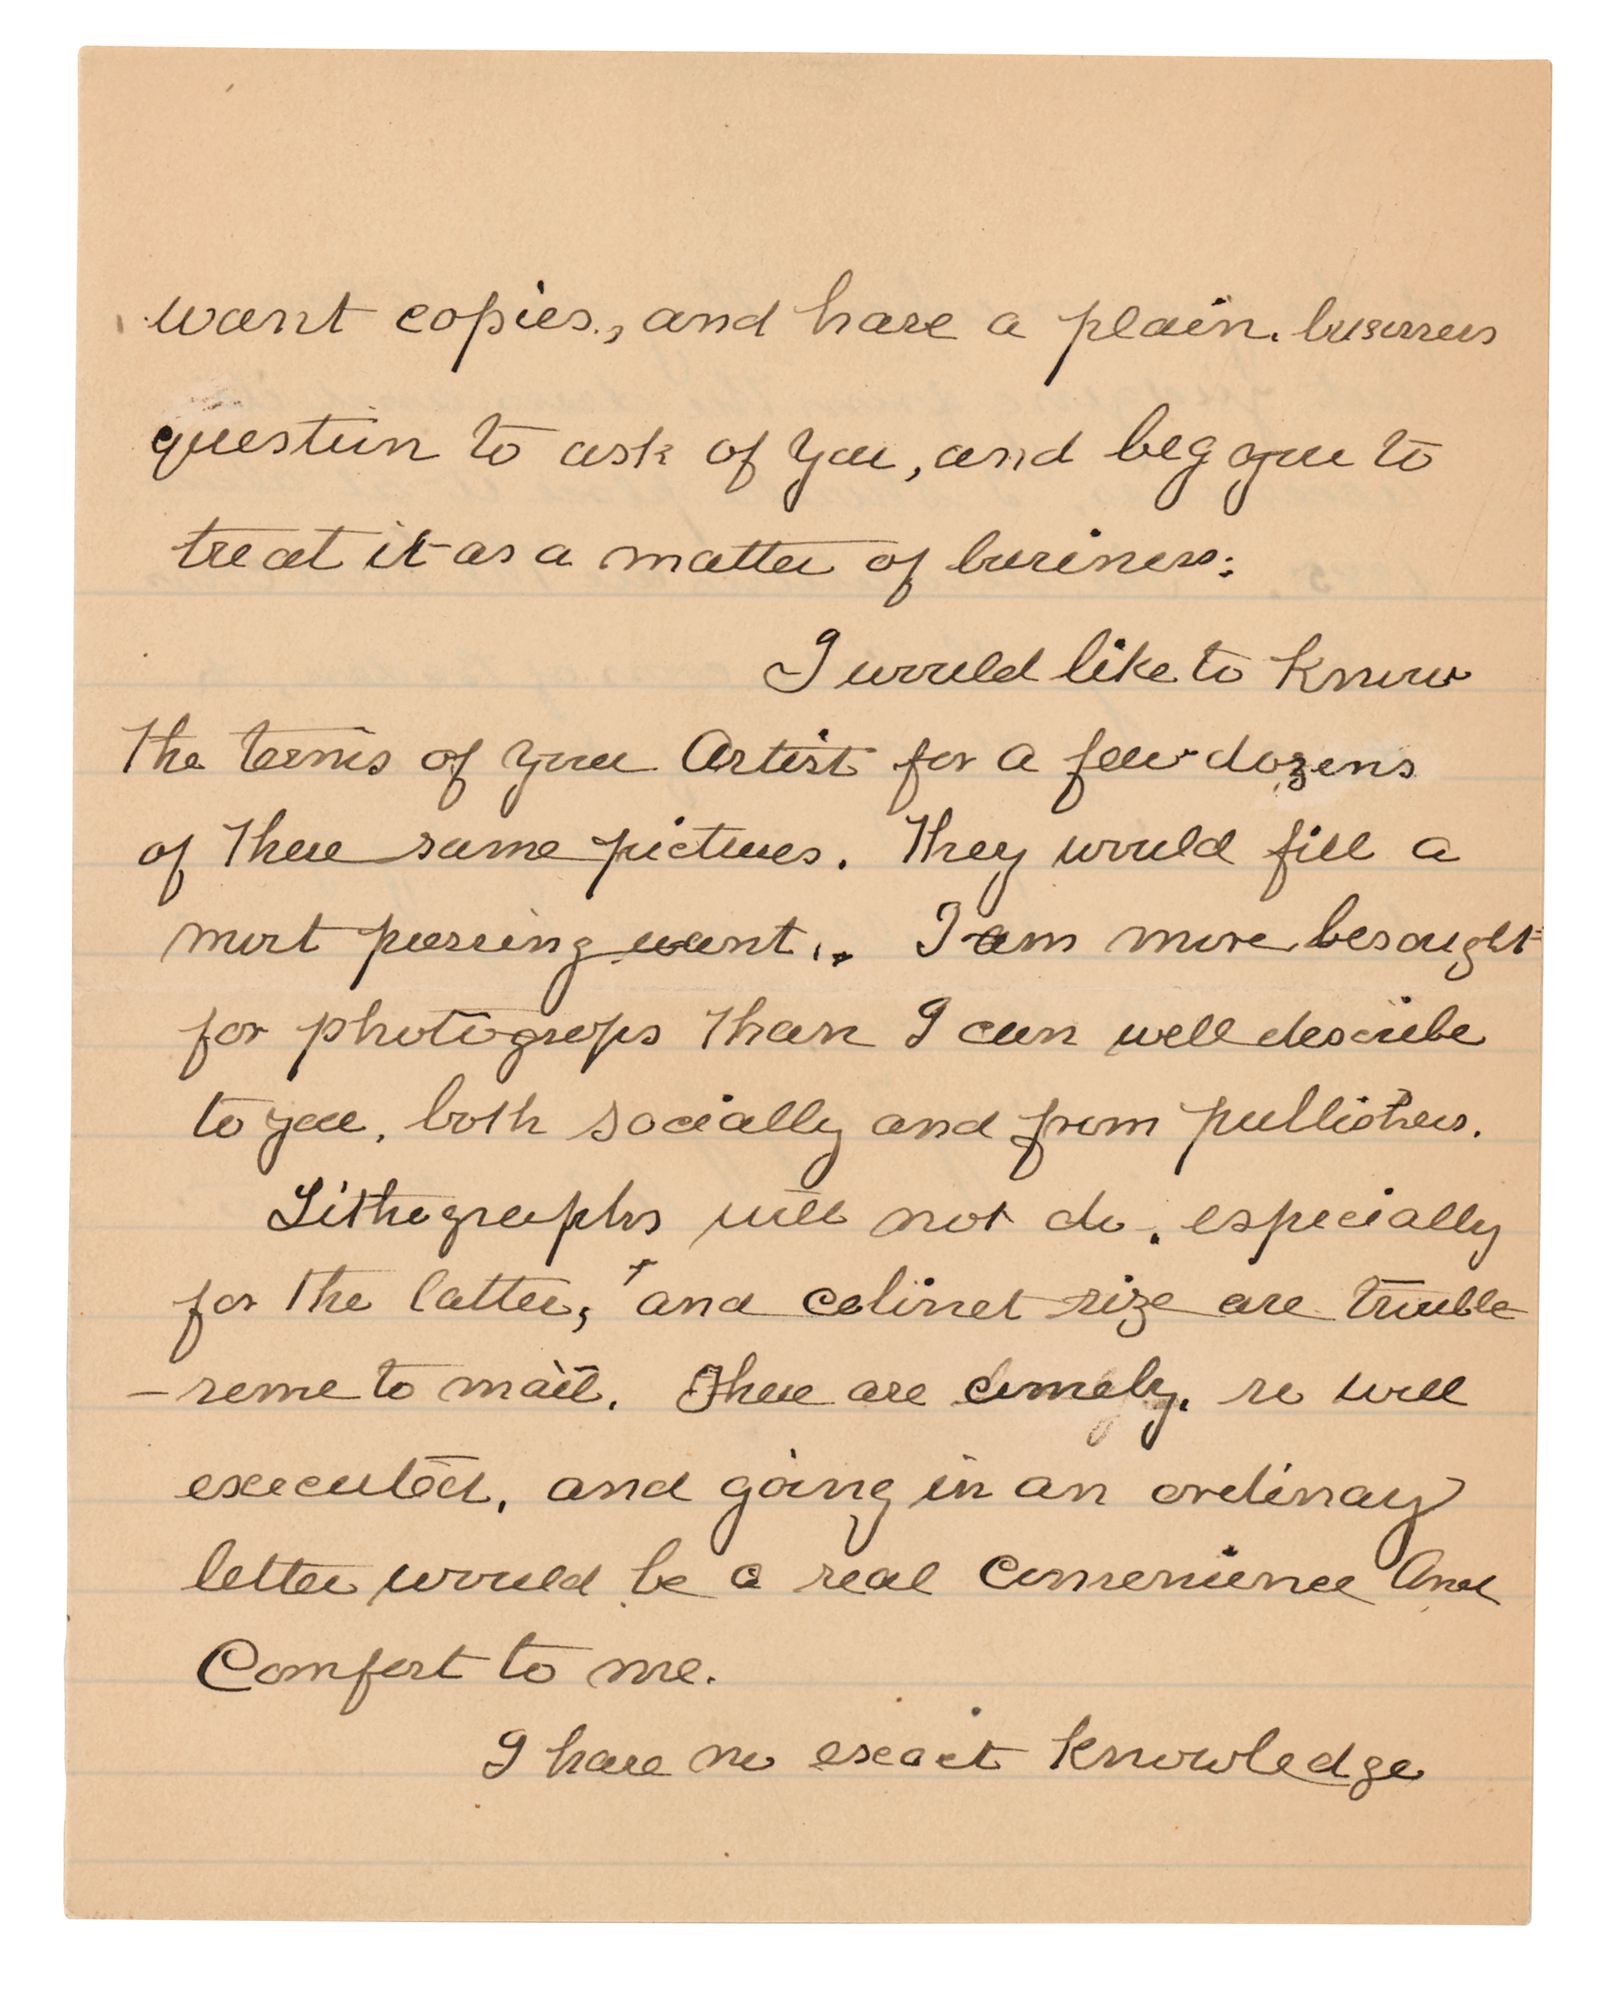 want copies, and have a plain. business
question to ask of you, and beg you to
treat it as a matter of business:
I would like to know
the terms of your Artist for a few dozens
of these same pictures. They would fill a
most pressing want. I am more besought
for photogrops than I can well describe
to you, both socially and from publishers.
Lithographs will not do, especially
for the latter, and cabinet size are trouble
-some to mail. These are comely, so well
executed, and going in an ordinary
letter would be a real convenience and
Comfort to me.
I have no exact knowledge